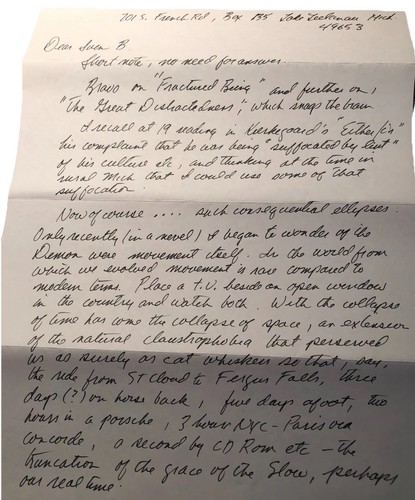 701 S. French Rd, Box 135 Lake Leelanau Mich.
49653
Dear Sven B.
Short note, no need for answer.
Bravo on "Fractured Being" and further on,
"The Great Distractedness", which snaps the brain
I recall at 19 reading in Kierkegaard's "Either/Or"
his complaint that he was being "suffocated by lint"
of his culture etc, and thinking at the time in
rural Mich that I could use some of that
suffocation.
Now of course .... such consequential ellipses.
Only recently (in a novel) I began to wonder if the
Demon were movement itself. In the world from
which we evolved movement is rare compared to
modern terms. Place a T.V. beside an open window
in the country and watch both. With the collapse
of time has come the collapse of space, an extension
of the natural claustrophobia that perserved
us as surely as cat whiskers so that, say,
the ride from St Cloud to Fergus Falls, three
days (?) on horse back, five days afoot, two
hours in a porsche, 3 hour NYC-Paris via
concorde, a second by CD Rom etc - the
truncation of the grace of the slow, perhaps
our real time.